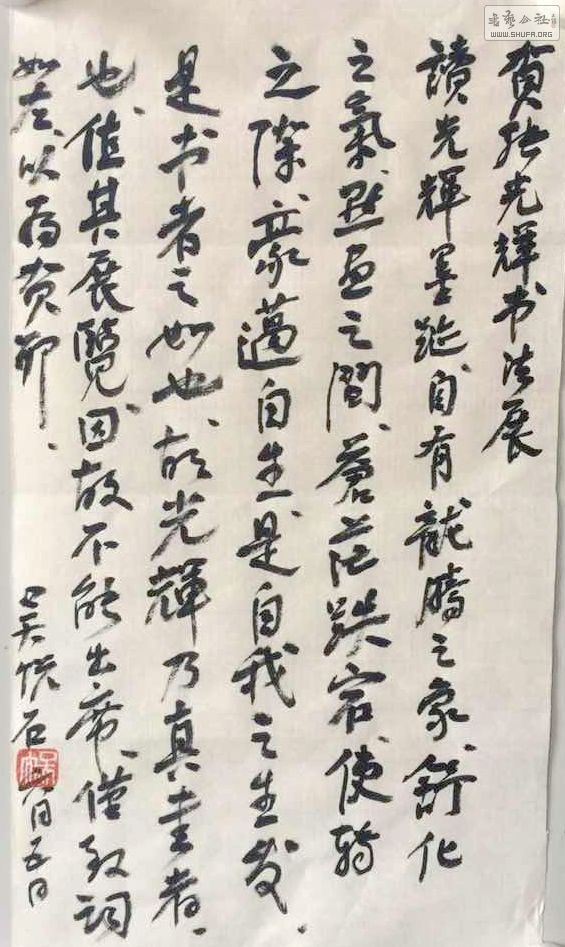 贺张光輝书法展
讀光輝墨跡自有龍腾之象、銷化
之氣、點画之間、蒼茫跌宕、使轉
之際、豪邁自生、是自我之生发、
是书者之如也、故光輝乃真書者
也、值其展覽、因故不能出席、僅致詞
如左、以为贺耶、
吴悦石
二月五日
書艺公社
WWW.SHUFA.ORG